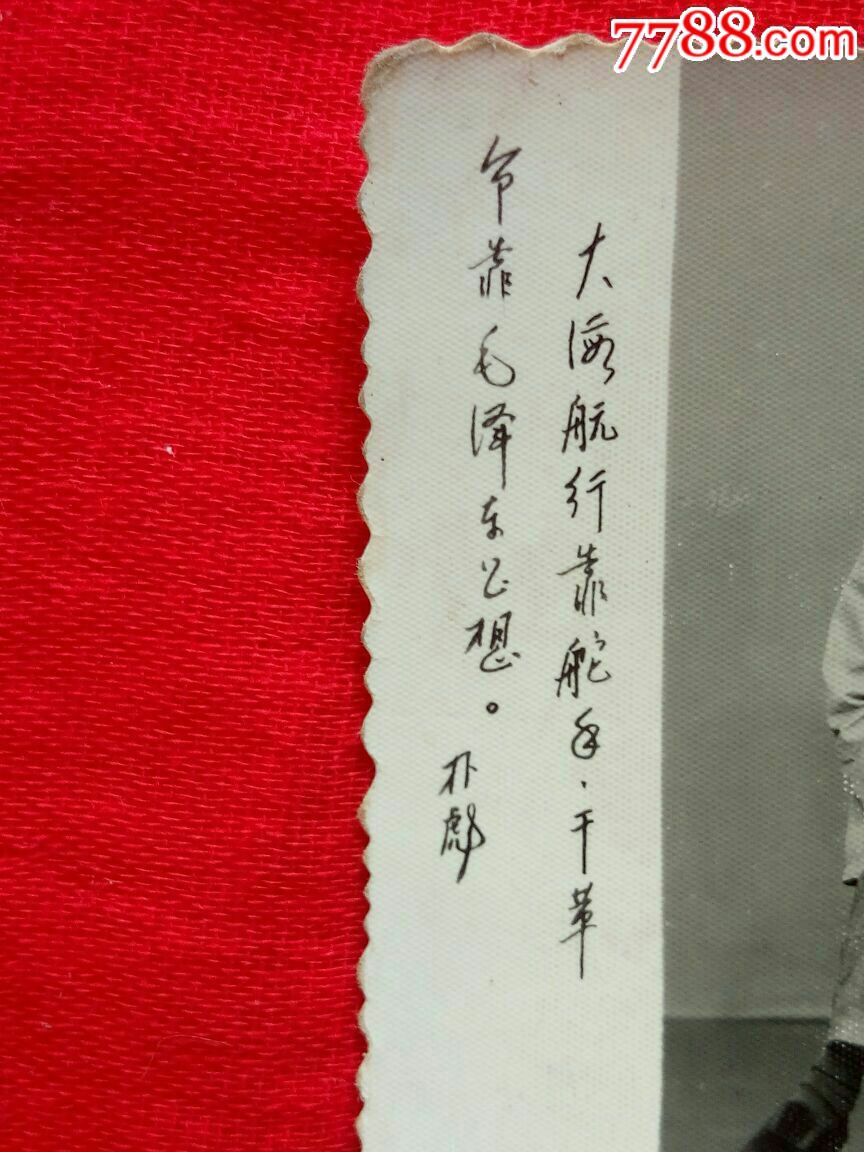 7788.com
大海航行靠舵手、干革
命靠毛泽东思想。
林彪